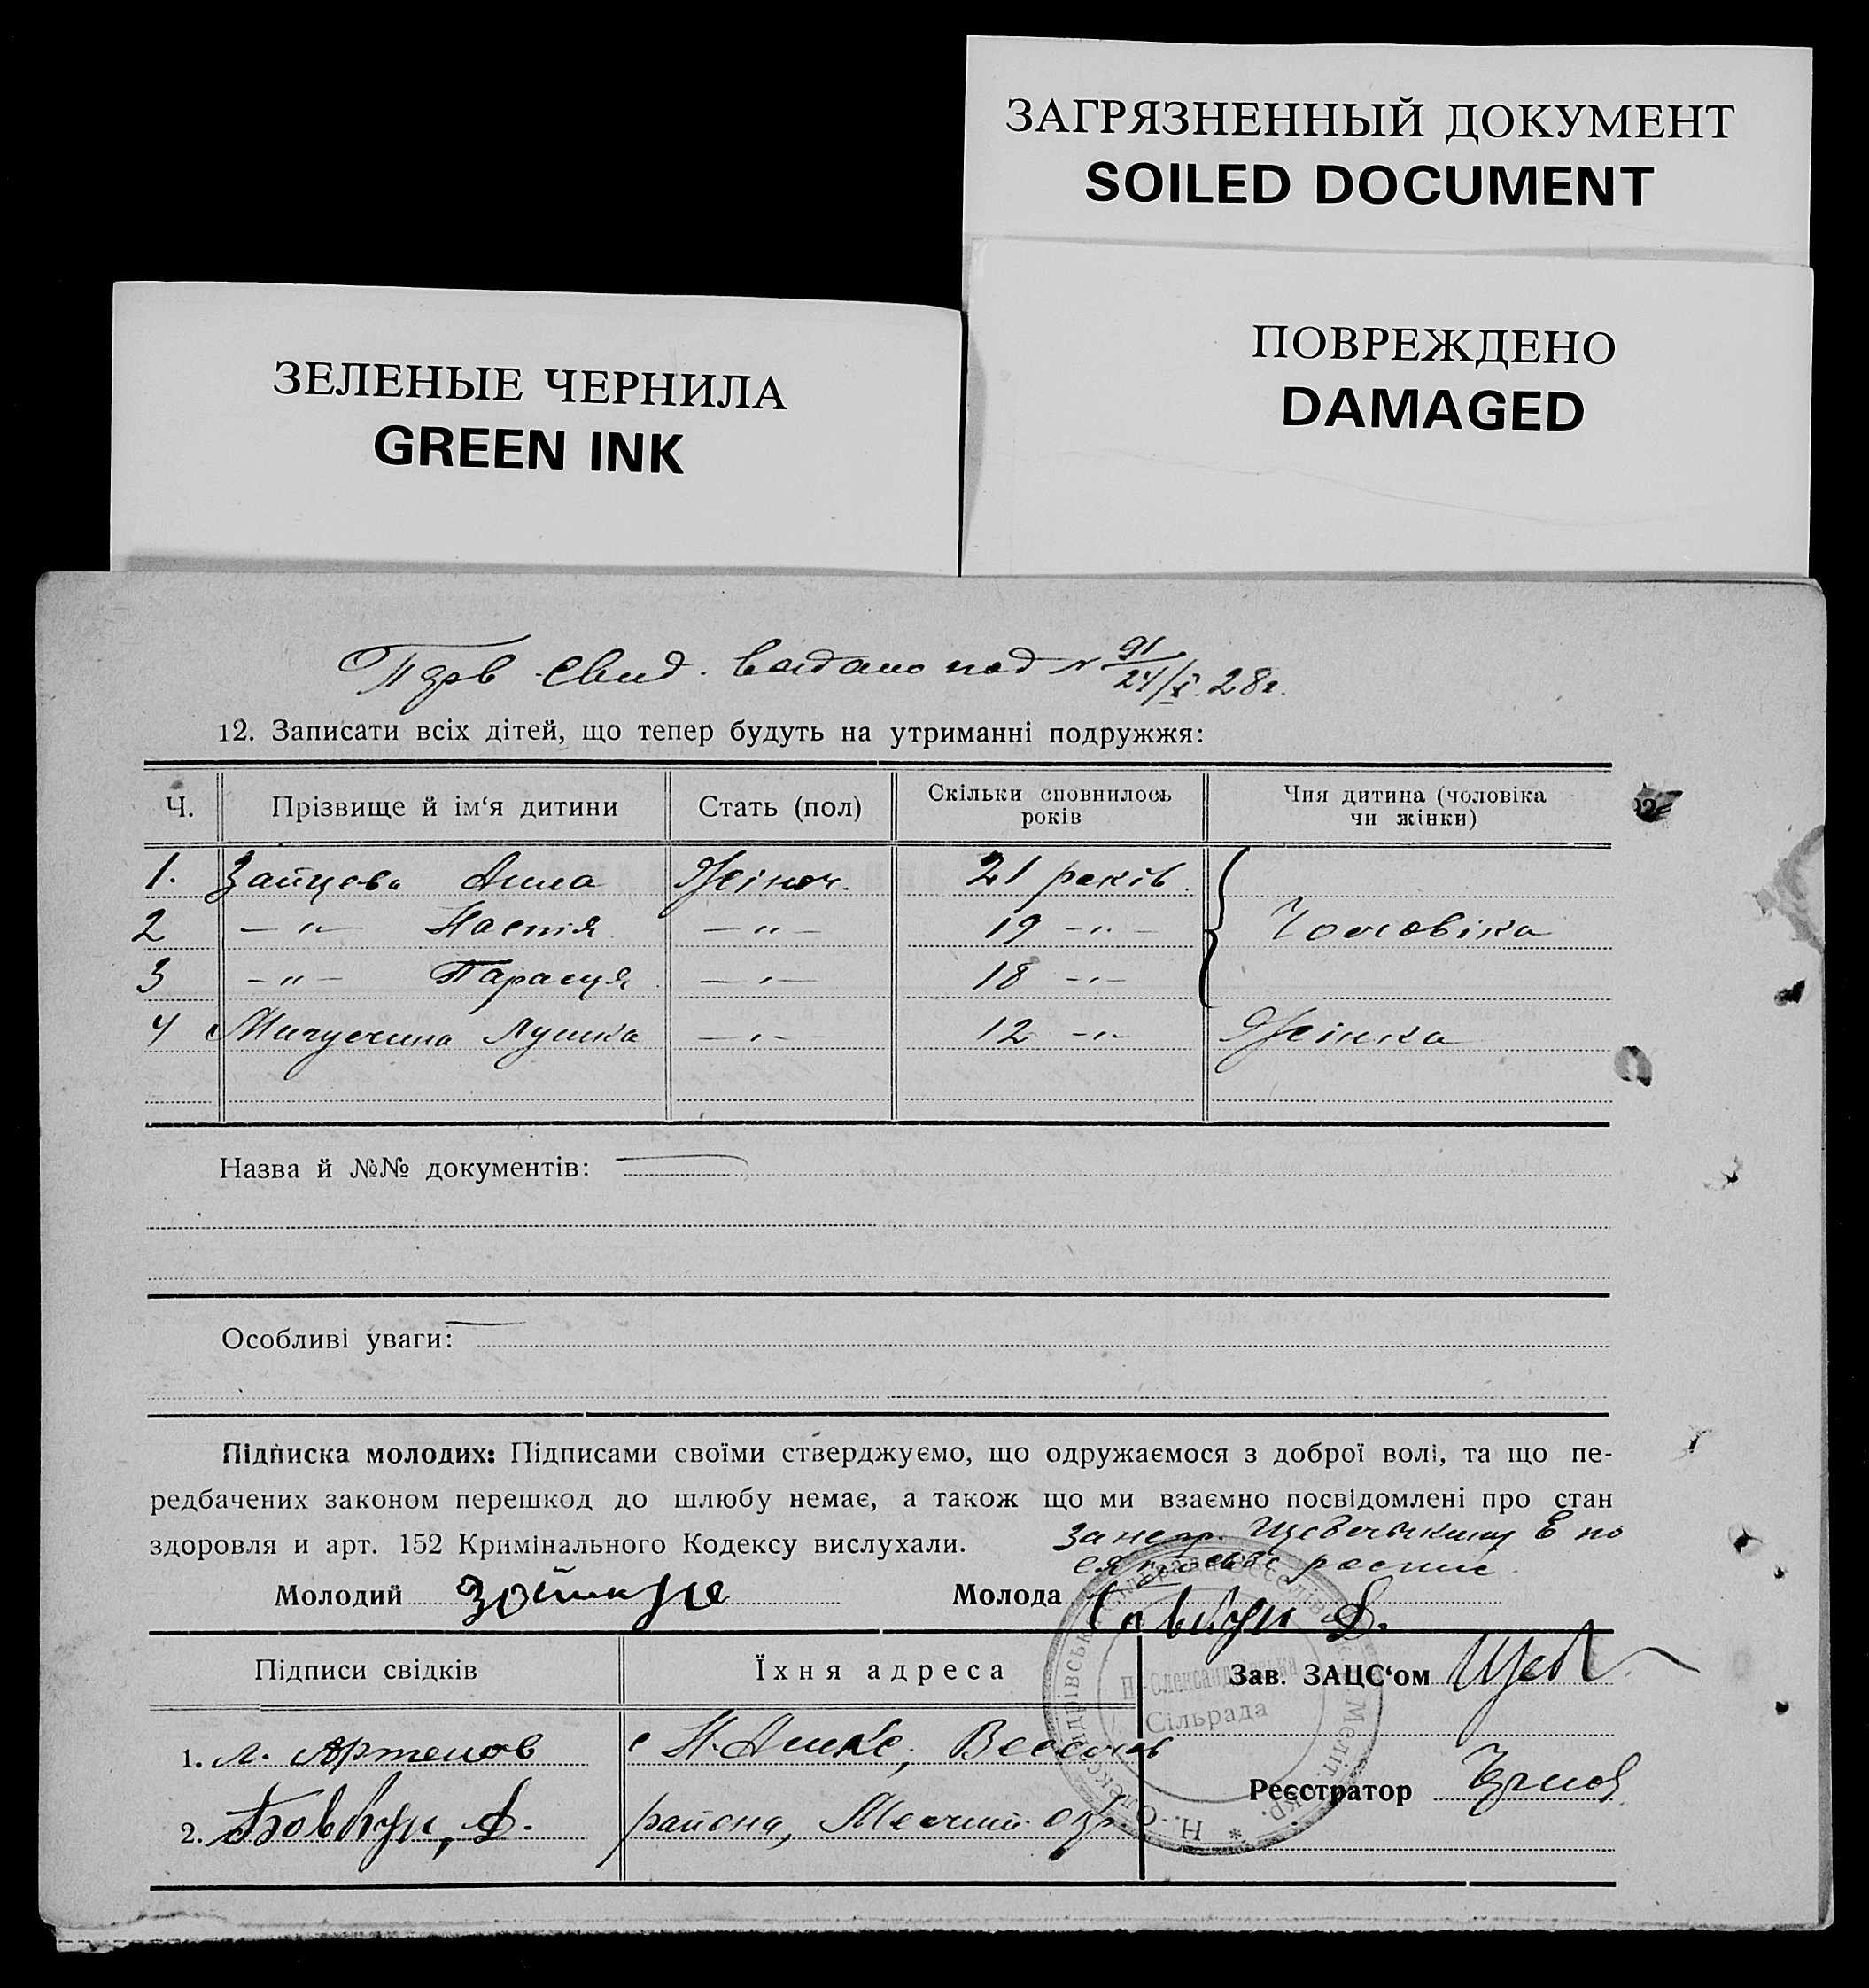 ЗАГРЯЗНЕННЫЙ ДОКУМЕНТ
SOILED DOCUMENT
ПОВРЕЖДЕНО
DAMAGED
ЗЕЛЕНЫЕ ЧЕРНИЛА
GREEN INK
свид. видано под № 91 24/X.28г.
12. Записати всіх дітей, що тепер будуть на утриманні подружжя:
Ч. Прізвище й ім‘я дитини Стать (пол) Скільки сповнилось років Чия дитина (чоловіка чи жінки)
1. Зайцева Анна Жіноч. 21 років
2 —"— Настя —"— 19 —"— Чоловіка
3 —"— Парасця —"— 18 —"—
4 Лушка —"— 12 —"— Жінка
Назва й №№ документів:
Особливі уваги:
Підписка молодих: Підписами своїми стверджуємо, що одружаємося з доброї волі, та що пе-
редбачених законом перешкод до шлюбу немає, а також що ми взаємно посвідомлені про стан
здоровля и арт. 152 Кримінального Кодексу вислухали.
За негр. Е по
роспис
Молодий Молода Д.
Підписи свідків Їхня адреса Зав. ЗАЦС‘ом
Н-Олександрівська
Сільрада
1. Л. Артемов с Н. Алекс, Веселов
Реєстратор
2. Бовкун, Д. района, Мелит. окр.